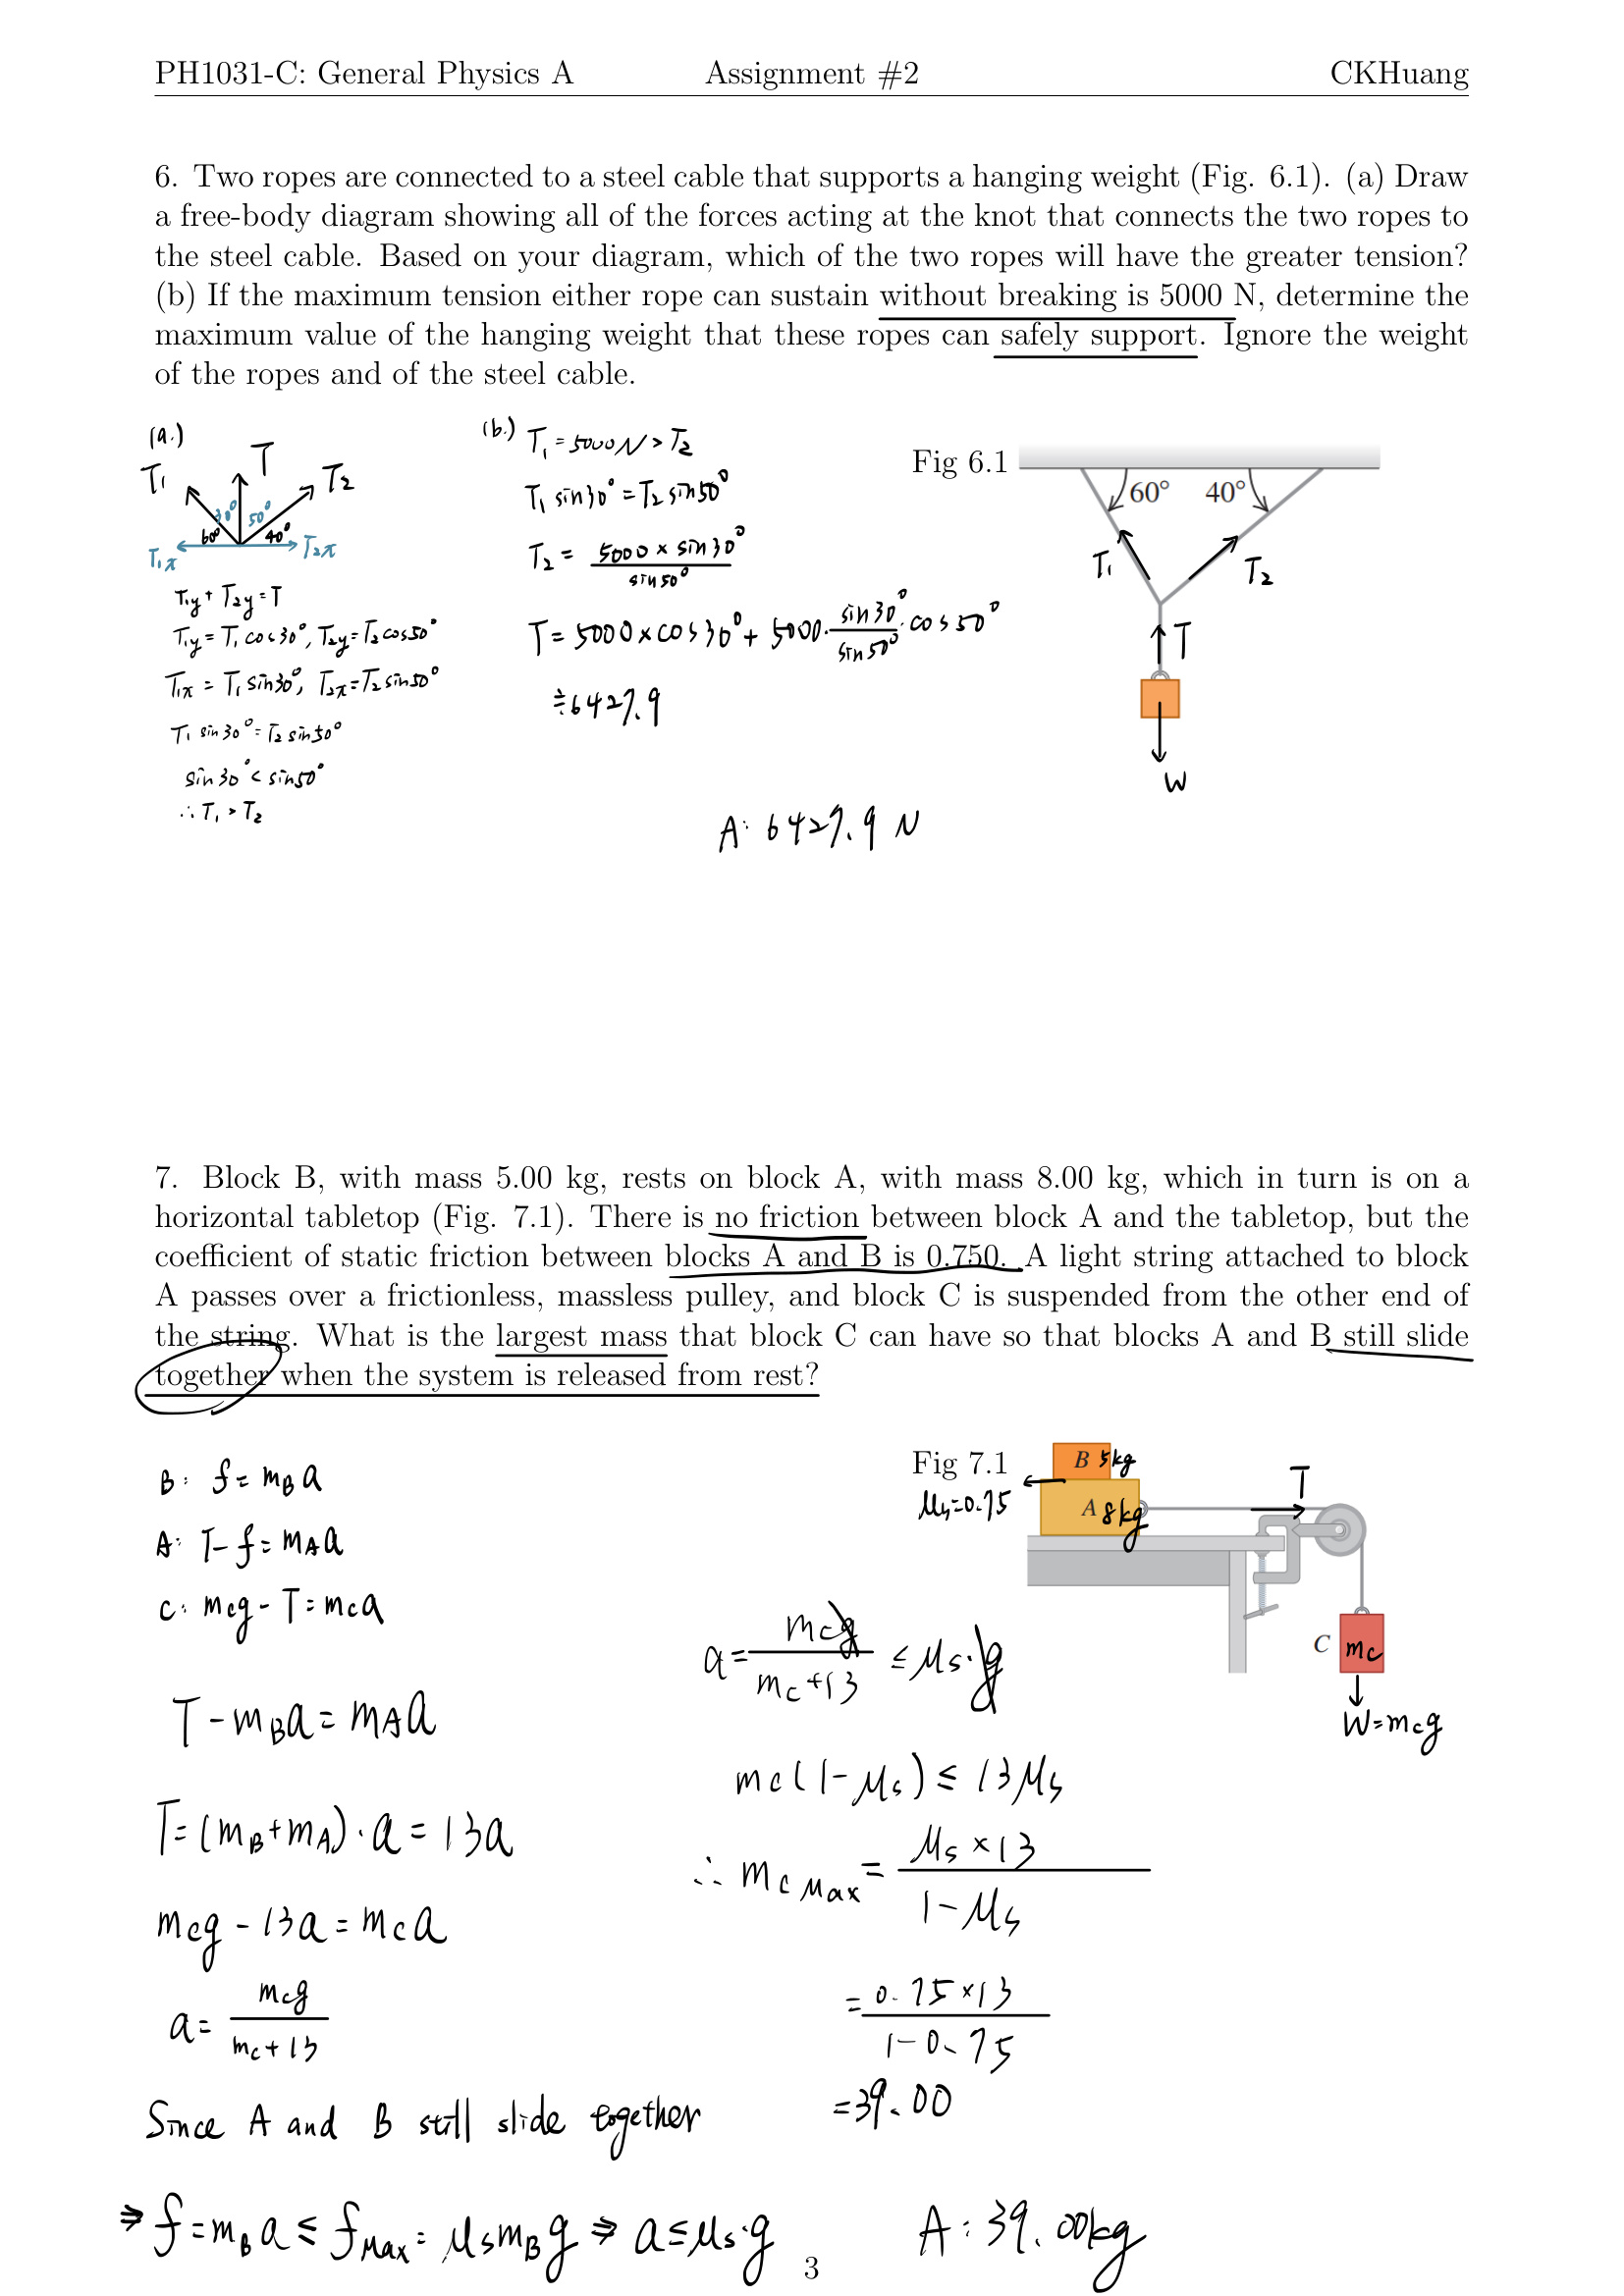 PH1031-C: General Physics A Assignment #2 CKHuang
6. Two ropes are connected to a steel cable that supports a hanging weight (Fig. 6.1). (a) Draw
a free-body diagram showing all of the forces acting at the knot that connects the two ropes to
the steel cable. Based on your diagram, which of the two ropes will have the greater tension?
(b) If the maximum tension either rope can sustain without breaking is 5000 N, determine the
maximum value of the hanging weight that these ropes can safely support. Ignore the weight
of the ropes and of the steel cable.
(a.)
T₁ T T₂
30° 50°
60° 40°
T₁x T₂x
T₁y + T₂y = T
T₁y = T₁ cos30°, T₂y = T₂ cos50°
T₁x = T₁ sin30°, T₂x = T₂ sin50°
T₁ sin30° = T₂ sin50°
sin30° < sin50°
∴ T₁ > T₂
(b.) T₁ = 5000N > T₂
T₁ sin30° = T₂ sin50°
T₂ = 5000 × sin30° / sin50°
T = 5000 × cos30° + 5000 · sin30° / sin50° · cos50°
≒ 6427.9
A: 6427.9 N
Fig 6.1
60° 40°
T₁ T₂
T
W
7. Block B, with mass 5.00 kg, rests on block A, with mass 8.00 kg, which in turn is on a
horizontal tabletop (Fig. 7.1). There is no friction between block A and the tabletop, but the
coefficient of static friction between blocks A and B is 0.750. A light string attached to block
A passes over a frictionless, massless pulley, and block C is suspended from the other end of
the string. What is the largest mass that block C can have so that blocks A and B still slide
together when the system is released from rest?
B: f = mB a
A: T - f = mA a
C: mcg - T = mca
T - mBa = mAa
T = (mB + mA) · a = 13a
mcg - 13a = mca
a = mcg / mc + 13
Since A and B still slide together
⇒ f = mB a ≤ fMax = μs mB g ⇒ a ≤ μs · g
a = mcg / mc + 13 ≤ μs · g
mc (1 - μs) ≤ 13 μs
∴ mc Max = μs × 13 / 1 - μs
= 0.75 × 13 / 1 - 0.75
= 39.00
A: 39.00kg
Fig 7.1
B 5kg
μs = 0.75
A 8kg
T
C mc
W = mcg
3